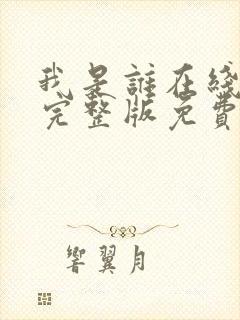 我是誰在綫
完整版免費
響翼月